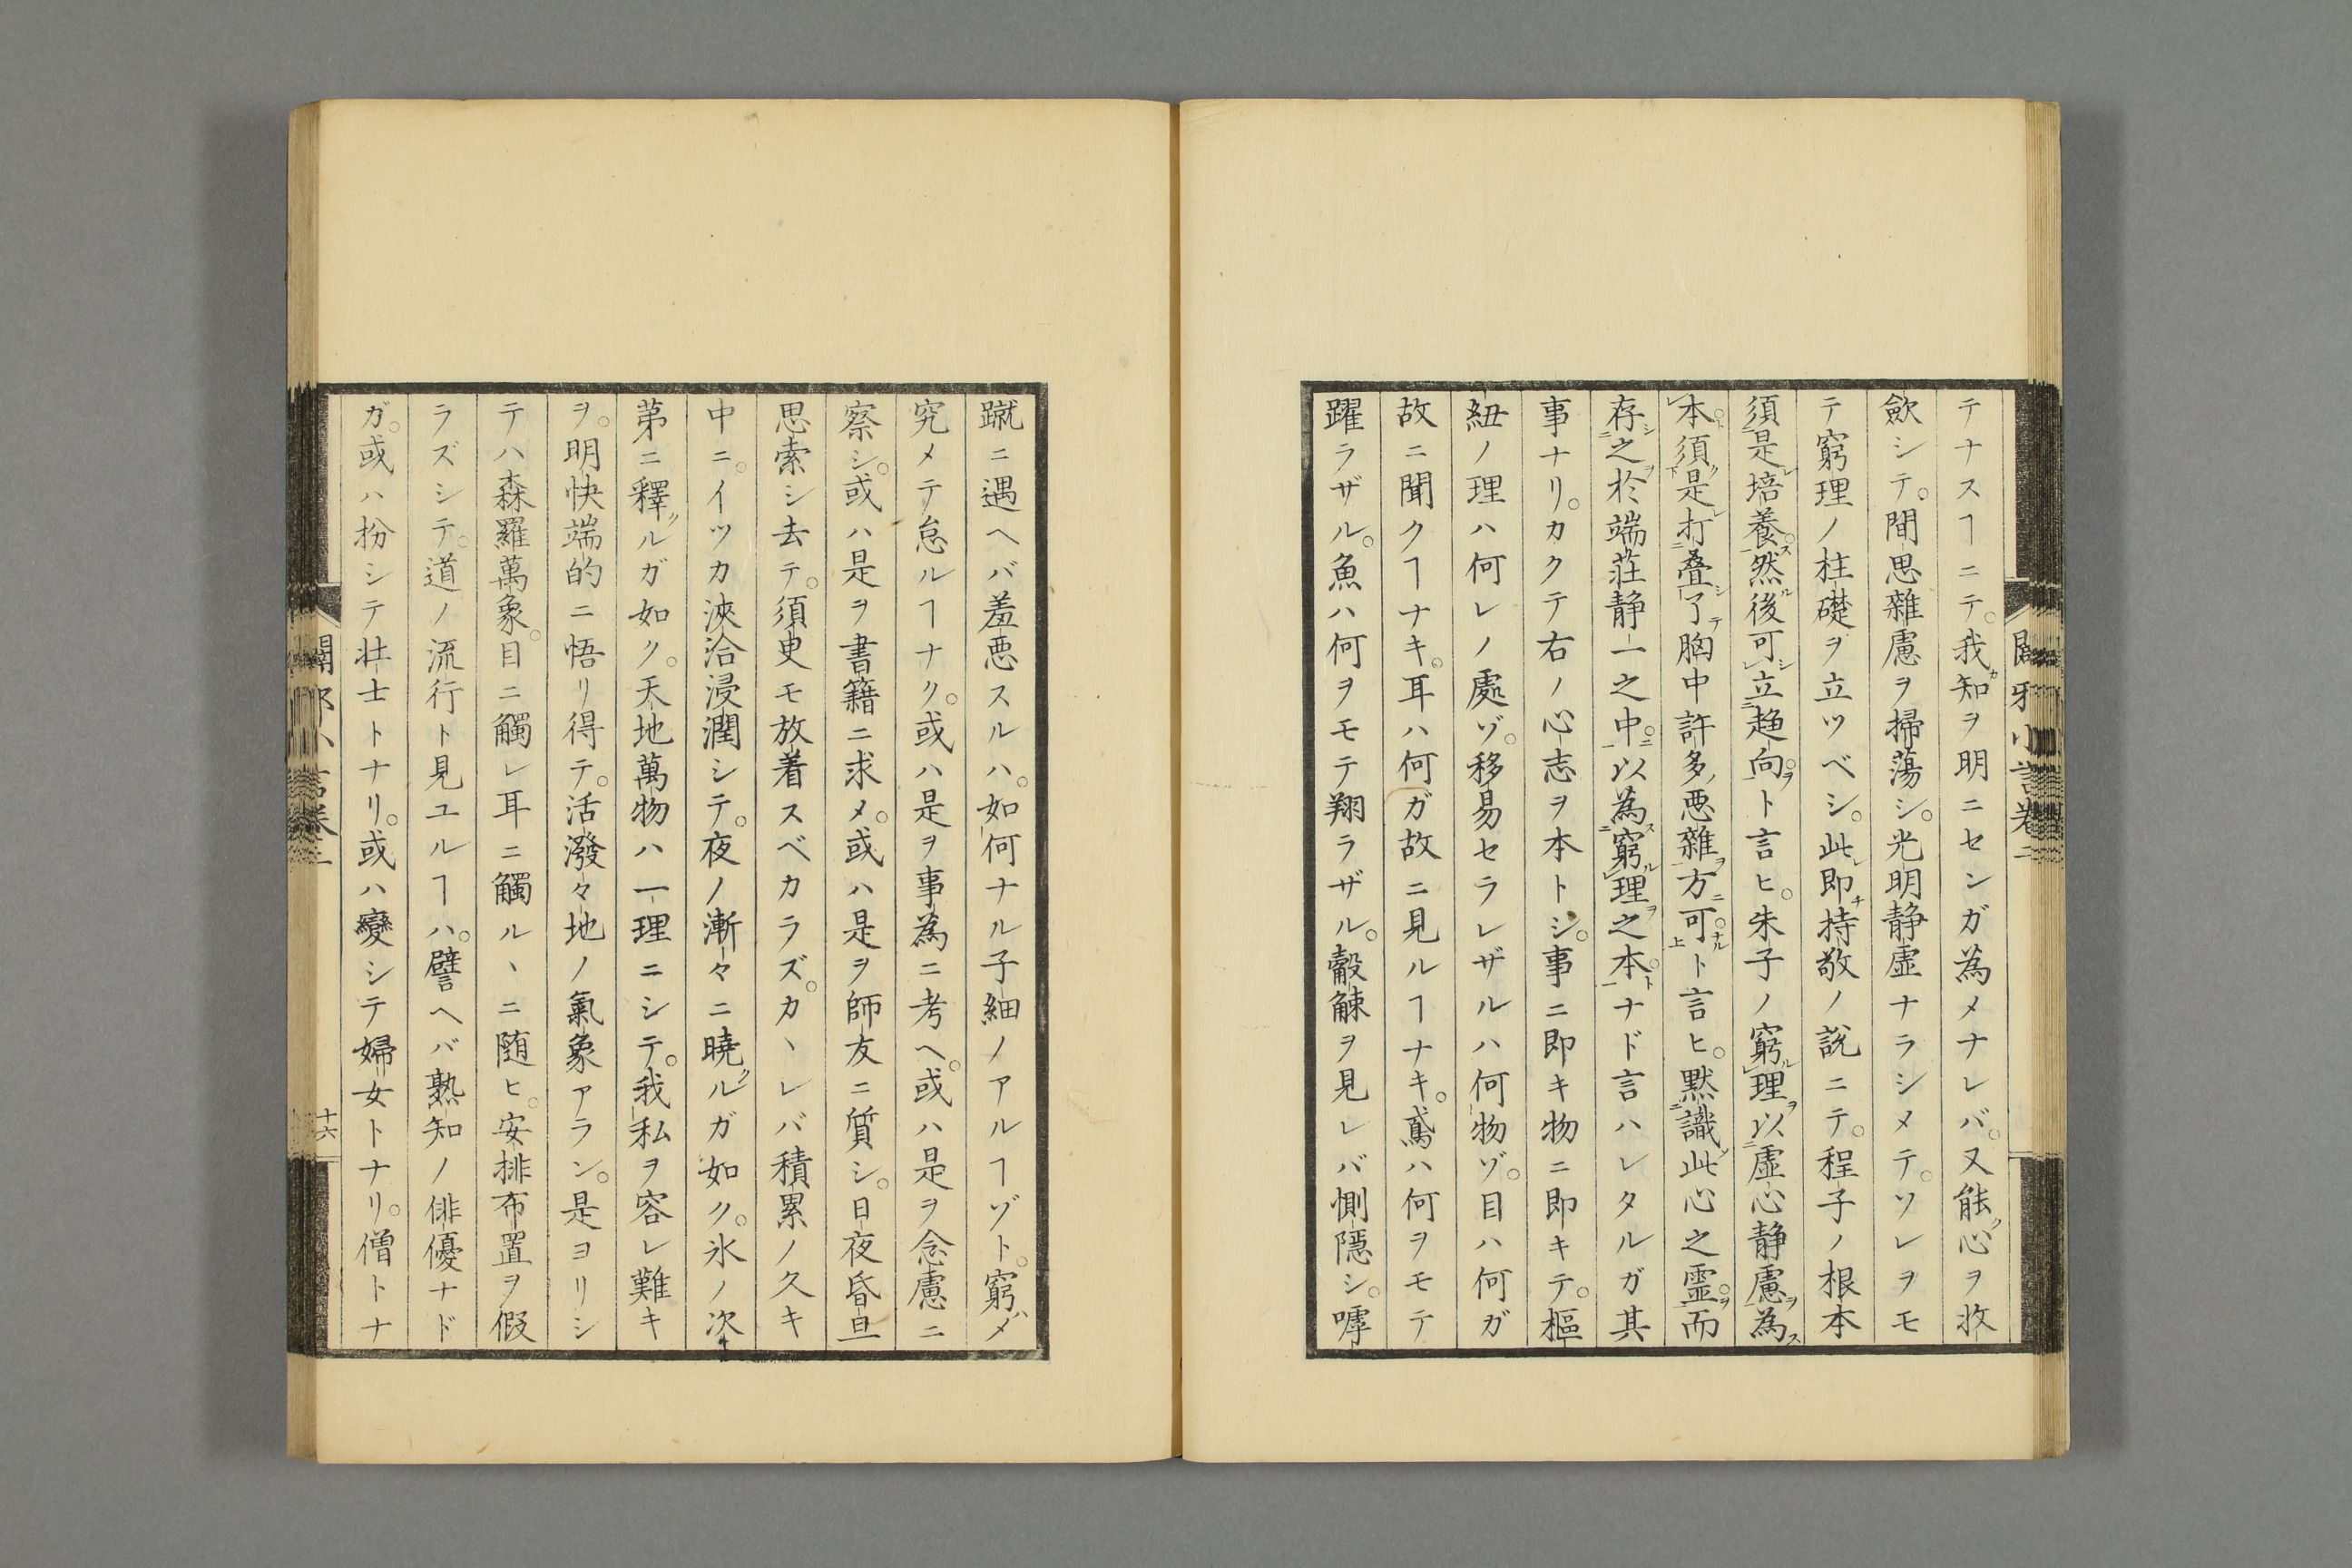 テナスヿニテ。我知ヲ明ニセンガ為メナレバ。又能ク心ヲ收
歛シテ。間思雜慮ヲ掃蕩シ。光明静虛ナラシメテ。ソレヲモ
テ窮理ノ柱礎ヲ立ツベシ。此レ即チ持敬ノ説ニテ。程子ノ根本
須是培養。然後可立趨向。ト言ヒ。朱子ノ窮理以虛心静慮為
本。須是打疊了胸中許多悪雜方可。ト言ヒ。黙識此心之霊。而
存之於端莊静一之中。以為窮理之本。ナド言ハレタルガ其
事ナリ。カクテ右ノ心志ヲ本トシ。事ニ即キ物ニ即キテ。樞
紐ノ理ハ何レノ處ゾ。移易セラレザルハ何物ゾ。目ハ何ガ
故ニ聞クヿナキ。耳ハ何ガ故ニ見ルヿナキ。鳶ハ何ヲモテ
躍ラザル。魚ハ何ヲモテ翔ラザル。觳觫ヲ見レバ惻隠シ。嘑
蹴ニ遇ヘバ羞悪スルハ。如何ナル子細ノアルヿゾト。窮ハメ
究メテ怠ルヿナク。或ハ是ヲ事為ニ考ヘ。或ハ是ヲ念慮ニ
察シ。或ハ是ヲ書籍ニ求メ。或ハ是ヲ師友ニ質シ。日夜昏旦
思索シ去テ。須臾モ放着スベカラズ。カヽレバ積累ノ久キ
中ニ。イツカ浹洽浸潤シテ。夜ノ漸々ニ曉クルガ如ク。氷ノ次
第ニ釋クルガ如ク。天地萬物ハ一理ニシテ。我私ヲ容レ難キ
ヲ。明快端的ニ悟リ得テ。活潑々地ノ氣象アラン。是ヨリシ
テハ森羅萬象。目ニ觸レ耳ニ觸ルヽニ随ヒ。安排布置ヲ假
ラズシテ。道ノ流行ト見ユルヿハ。譬ヘバ熟知ノ俳優ナド
ガ。或ハ扮シテ壮士トナリ。或ハ變シテ婦女トナリ。僧トナ
十六